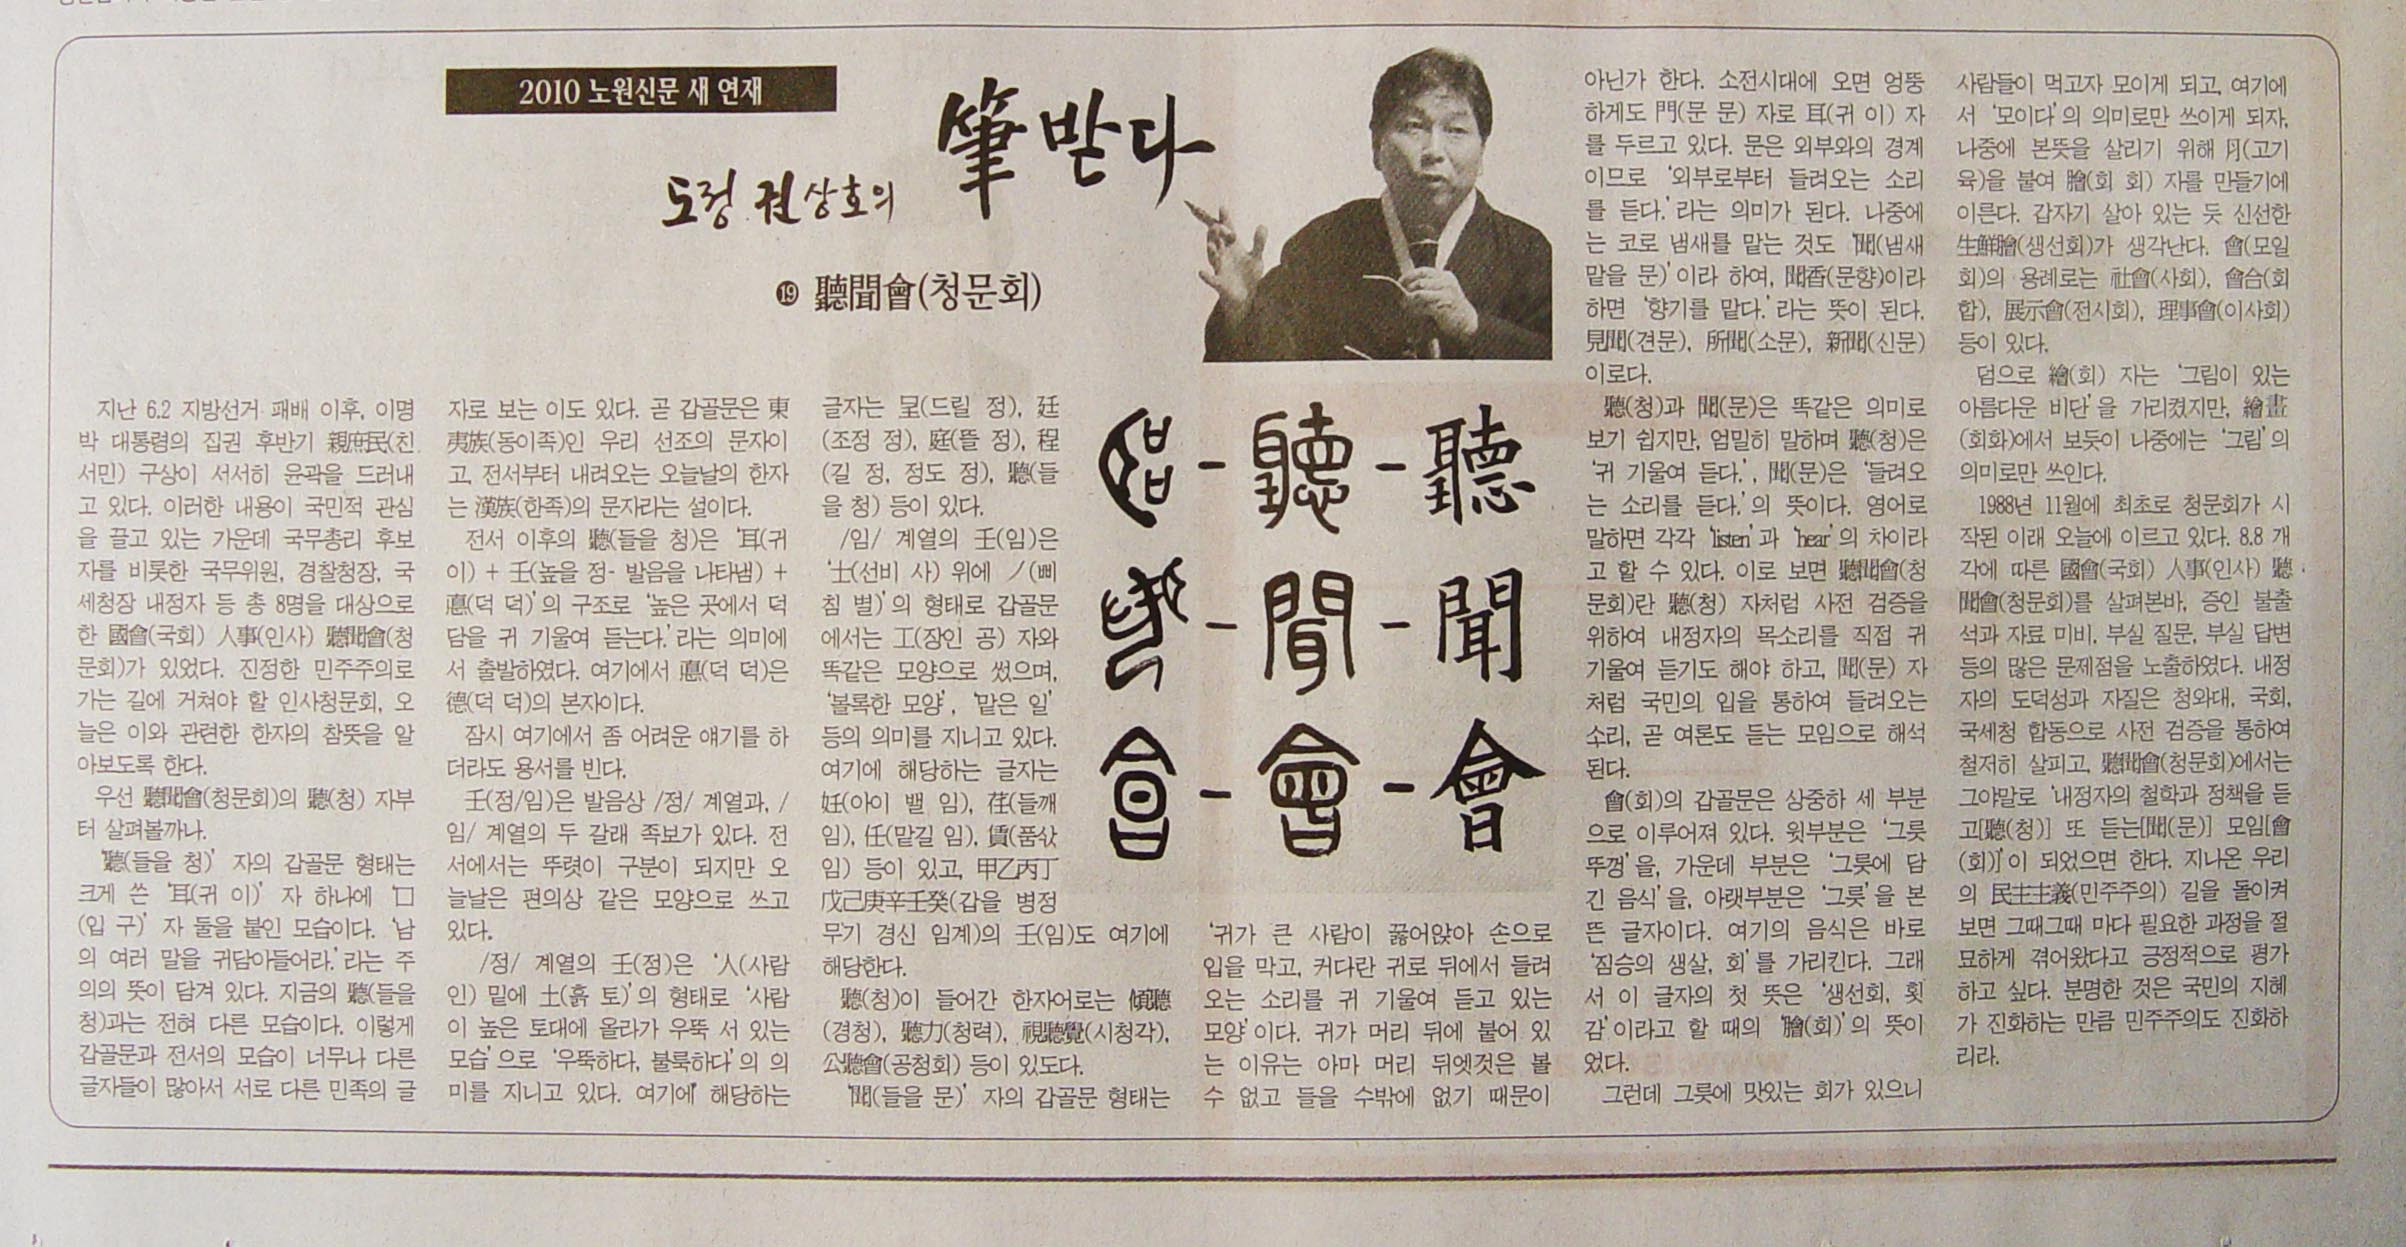 2010 노원신문 새 연재
筆받다
도정 권상호의
⑲ 聽聞會(청문회)
지난 6.2 지방선거 패배 이후, 이명
박 대통령의 집권 후반기 親庶民(친
서민) 구상이 서서히 윤곽을 드러내
고 있다. 이러한 내용이 국민적 관심
을 끌고 있는 가운데 국무총리 후보
자를 비롯한 국무위원, 경찰청장, 국
세청장 내정자 등 총 8명을 대상으로
한 國會(국회) 人事(인사) 聽聞會(청
문회)가 있었다. 진정한 민주주의로
가는 길에 거쳐야 할 인사청문회, 오
늘은 이와 관련한 한자의 참뜻을 알
아보도록 한다.
우선 聽聞會(청문회)의 聽(청) 자부
터 살펴볼까나.
'聽(들을 청)' 자의 갑골문 형태는
크게 쓴 '耳(귀 이)' 자 하나에 '口
(입 구)' 자 둘을 붙인 모습이다. '남
의 여러 말을 귀담아들어라.'라는 주
의의 뜻이 담겨 있다. 지금의 聽(들을
청)과는 전혀 다른 모습이다. 이렇게
갑골문과 전서의 모습이 너무나 다른
글자들이 많아서 서로 다른 민족의 글
자로 보는 이도 있다. 곧 갑골문은 東
夷族(동이족)인 우리 선조의 문자이
고, 전서부터 내려오는 오늘날의 한자
는 漢族(한족)의 문자라는 설이다.
전서 이후의 聽(들을 청)은 '耳(귀
이) + 壬(높을 정- 발음을 나타냄) +
悳(덕 덕)'의 구조로 '높은 곳에서 덕
담을 귀 기울여 듣는다.'라는 의미에
서 출발하였다. 여기에서 悳(덕 덕)은
德(덕 덕)의 본자이다.
잠시 여기에서 좀 어려운 얘기를 하
더라도 용서를 빈다.
壬(정/임)은 발음상 /정/ 계열과, /
임/ 계열의 두 갈래 족보가 있다. 전
서에서는 뚜렷이 구분이 되지만 오
늘날은 편의상 같은 모양으로 쓰고
있다.
/정/ 계열의 壬(정)은 '人(사람
인) 밑에 土(흙 토)'의 형태로 '사람
이 높은 토대에 올라가 우뚝 서 있는
모습'으로 '우뚝하다, 불룩하다'의 의
미를 지니고 있다. 여기에 해당하는
글자는 呈(드릴 정), 廷
(조정 정), 庭(뜰 정), 程
(길 정, 정도 정), 聽(들
을 청) 등이 있다.
/임/ 계열의 壬(임)은
'士(선비 사) 위에 丿(삐
침 별)'의 형태로 갑골문
에서는 工(장인 공) 자와
똑같은 모양으로 썼으며,
'볼록한 모양', '맡은 일'
등의 의미를 지니고 있다.
여기에 해당하는 글자는
妊(아이 밸 임), 荏(들깨
임), 任(맡길 임), 賃(품삯
임) 등이 있고, 甲乙丙丁
戊己庚辛壬癸(갑을 병정
무기 경신 임계)의 壬(임)도 여기에
해당한다.
聽(청)이 들어간 한자어로는 傾聽
(경청), 聽力(청력), 視聽覺(시청각),
公聽會(공청회) 등이 있도다.
'聞(들을 문)' 자의 갑골문 형태는
- 聽 - 聽
- 聞 - 聞
會 - 會 - 會
'귀가 큰 사람이 꿇어앉아 손으로
입을 막고, 커다란 귀로 뒤에서 들려
오는 소리를 귀 기울여 듣고 있는
모양'이다. 귀가 머리 뒤에 붙어 있
는 이유는 아마 머리 뒤엣것은 볼
수 없고 들을 수밖에 없기 때문이
아닌가 한다. 소전시대에 오면 엉뚱
하게도 門(문 문) 자로 耳(귀 이) 자
를 두르고 있다. 문은 외부와의 경계
이므로 '외부로부터 들려오는 소리
를 듣다.'라는 의미가 된다. 나중에
는 코로 냄새를 맡는 것도 '聞(냄새
맡을 문)'이라 하여, 聞香(문향)이라
하면 '향기를 맡다.'라는 뜻이 된다.
見聞(견문), 所聞(소문), 新聞(신문)
이로다.
聽(청)과 聞(문)은 똑같은 의미로
보기 쉽지만, 엄밀히 말하며 聽(청)은
'귀 기울여 듣다.', 聞(문)은 '들려오
는 소리를 듣다.'의 뜻이다. 영어로
말하면 각각 'listen'과 'hear'의 차이라
고 할 수 있다. 이로 보면 聽聞會(청
문회)란 聽(청) 자처럼 사전 검증을
위하여 내정자의 목소리를 직접 귀
기울여 듣기도 해야 하고, 聞(문) 자
처럼 국민의 입을 통하여 들려오는
소리, 곧 여론도 듣는 모임으로 해석
된다.
會(회)의 갑골문은 상중하 세 부분
으로 이루어져 있다. 윗부분은 '그릇
뚜껑'을, 가운데 부분은 '그릇에 담
긴 음식'을, 아랫부분은 '그릇'을 본
뜬 글자이다. 여기의 음식은 바로
'짐승의 생살, 회'를 가리킨다. 그래
서 이 글자의 첫 뜻은 '생선회, 횟
감'이라고 할 때의 '膾(회)'의 뜻이
었다.
그런데 그릇에 맛있는 회가 있으니
사람들이 먹고자 모이게 되고, 여기에
서 '모이다'의 의미로만 쓰이게 되자,
나중에 본뜻을 살리기 위해 月(고기
육)을 붙여 膾(회 회) 자를 만들기에
이른다. 갑자기 살아 있는 듯 신선한
生鮮膾(생선회)가 생각난다. 會(모일
회)의 용례로는 社會(사회), 會合(회
합), 展示會(전시회), 理事會(이사회)
등이 있다.
덤으로 繪(회) 자는 '그림이 있는
아름다운 비단'을 가리켰지만, 繪畫
(회화)에서 보듯이 나중에는 '그림'의
의미로만 쓰인다.
1988년 11월에 최초로 청문회가 시
작된 이래 오늘에 이르고 있다. 8.8 개
각에 따른 國會(국회) 人事(인사) 聽
聞會(청문회)를 살펴본바, 증인 불출
석과 자료 미비, 부실 질문, 부실 답변
등의 많은 문제점을 노출하였다. 내정
자의 도덕성과 자질은 청와대, 국회,
국세청 합동으로 사전 검증을 통하여
철저히 살피고, 聽聞會(청문회)에서는
그야말로 '내정자의 철학과 정책을 듣
고[聽(청)] 또 듣는[聞(문)] 모임[會
(회)]'이 되었으면 한다. 지나온 우리
의 民主主義(민주주의) 길을 돌이켜
보면 그때그때 마다 필요한 과정을 절
묘하게 겪어왔다고 긍정적으로 평가
하고 싶다. 분명한 것은 국민의 지혜
가 진화하는 만큼 민주주의도 진화하
리라.